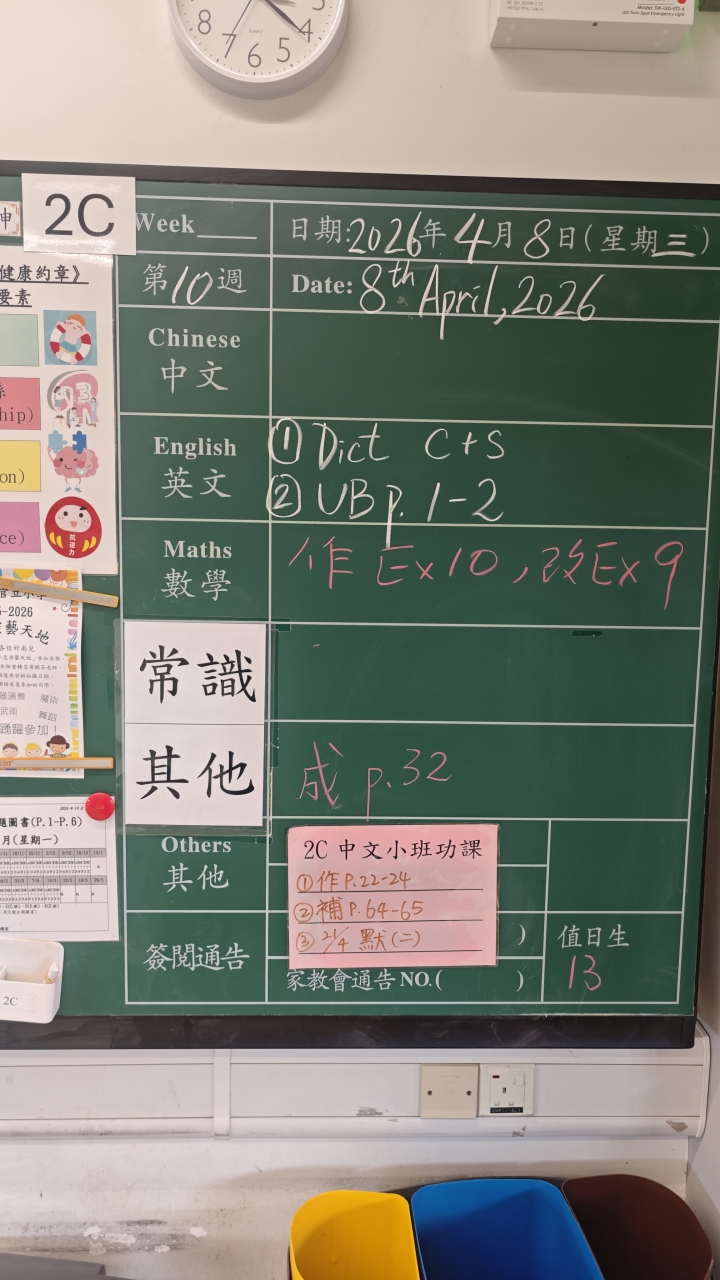 8 7 6 5 4 3
Model: SW-LED-2T2-A
LED Twin Spot Emergency Light
神
2C
Week
日期:2026年4月8日(星期三)
第10週
Date: 8th April, 2026
健康約章》
要素
Chinese
中文
hip)
on)
ce)
English
英文
① Dict C+S
② UB p. 1-2
Maths
數學
作 Ex 10 , 改 Ex 9
常識
其他
成 p.32
2026
藝天地
魔術
舞蹈
踴躍參加!
圖書(P.1-P.6)
月(星期一)
Others
其他
2C 中文小班功課
①作 P.22-24
②補 P.64-65
③ 2/4 默(二)
簽閱通告
)
家教會通告 NO.( )
值日生
13
2C